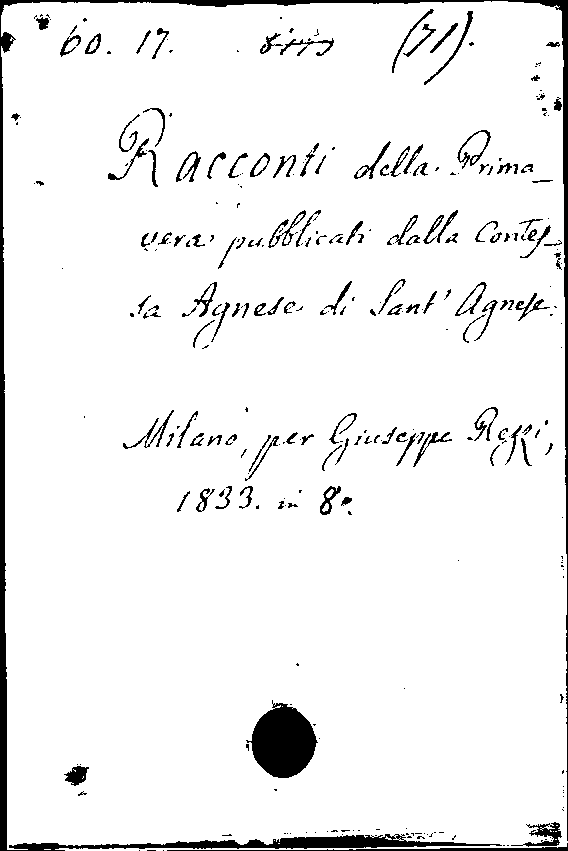 60. 17. (71).
Racconti della Prima_
vera pubblicati dalla Contes_
sa Agnese di Sant' Agnese.
Milano, per Giuseppe Rezzi,
1833. in 8º.